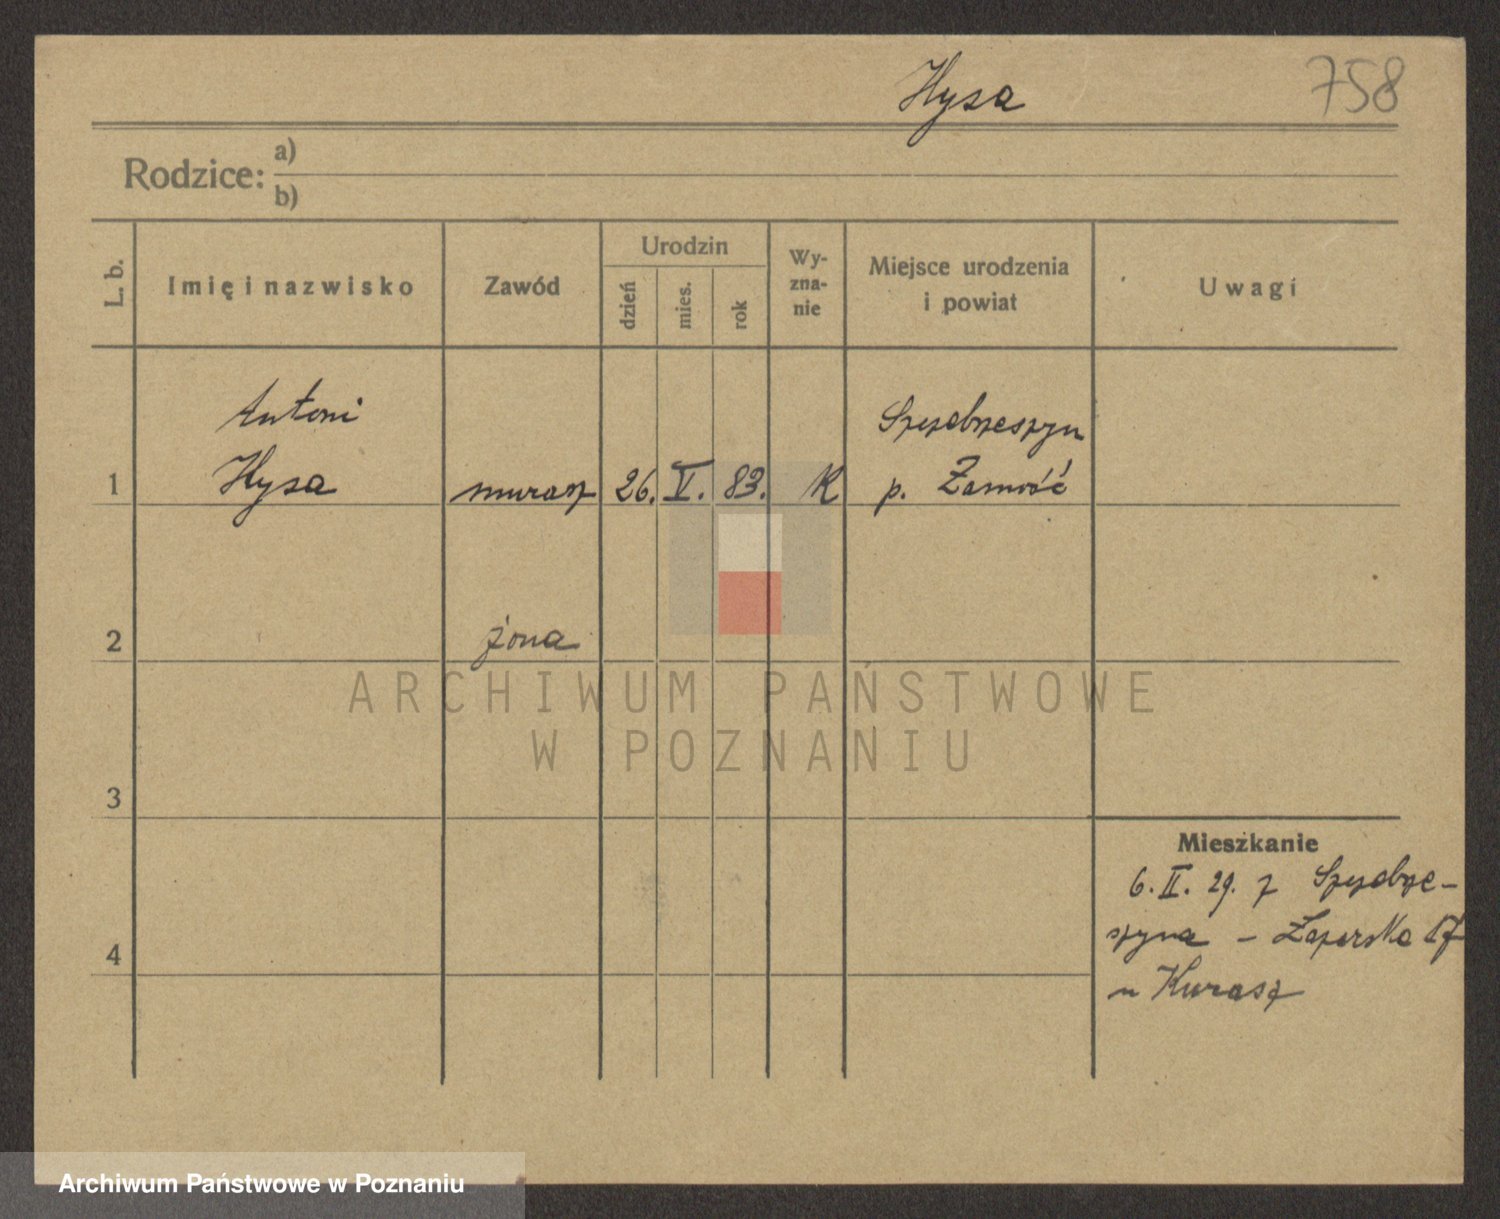 Hysa
758
Rodzice: a)
b)
L. b.
Imię i nazwisko
Zawód
Urodzin
dzień
mies.
rok
Wy-
zna-
nie
Miejsce urodzenia
i powiat
Uwagi
Antoni
Szczebrzeszyn
1 Hysa murarz 26. V. 83. K p. Zamość
2 żona
ARCHIWUM PAŃSTWOWE
W POZNANIU
3
Mieszkanie
6. II. 29. z Szczebrze-
szyna - 17
4
u Kurasz
Archiwum Państwowe w Poznaniu